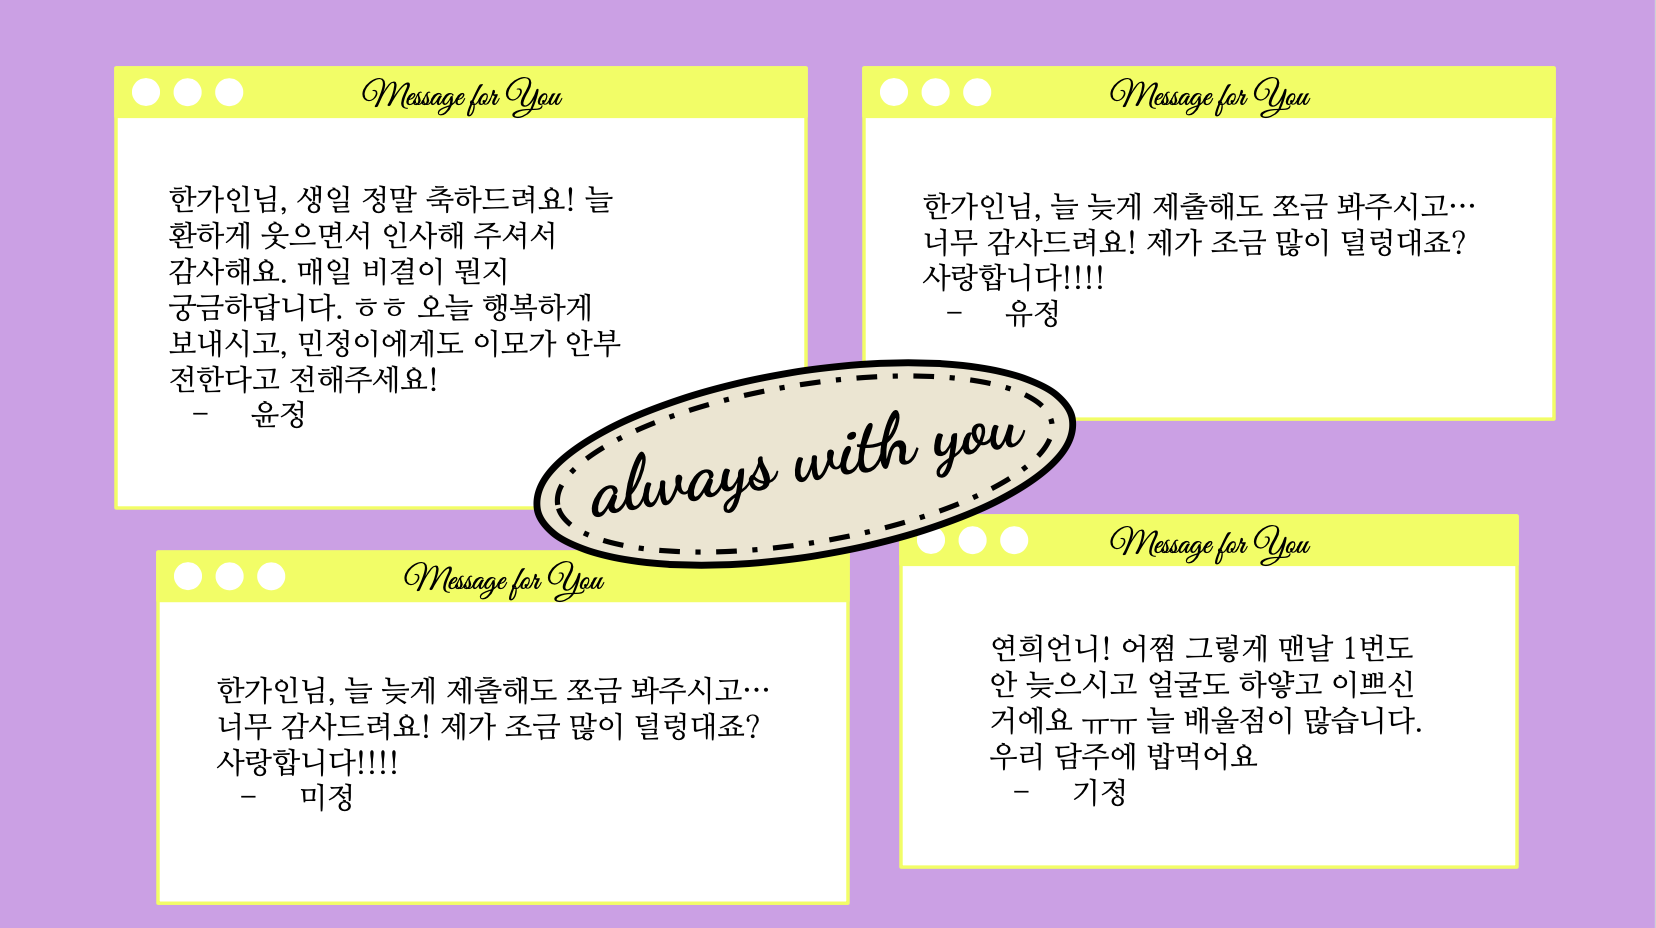 Message for You
한가인님, 생일 정말 축하드려요! 늘
환하게 웃으면서 인사해 주셔서
감사해요. 매일 비결이 뭔지
궁금하답니다. ㅎㅎ 오늘 행복하게
보내시고, 민정이에게도 이모가 안부
전한다고 전해주세요!
- 윤정
Message for You
한가인님, 늘 늦게 제출해도 쪼금 봐주시고…
너무 감사드려요! 제가 조금 많이 덜렁대죠?
사랑합니다!!!!
- 유정
always with you
Message for You
한가인님, 늘 늦게 제출해도 쪼금 봐주시고…
너무 감사드려요! 제가 조금 많이 덜렁대죠?
사랑합니다!!!!
- 미정
Message for You
연희언니! 어쩜 그렇게 맨날 1번도
안 늦으시고 얼굴도 하얗고 이쁘신
거에요 ㅠㅠ 늘 배울점이 많습니다.
우리 담주에 밥먹어요
- 기정